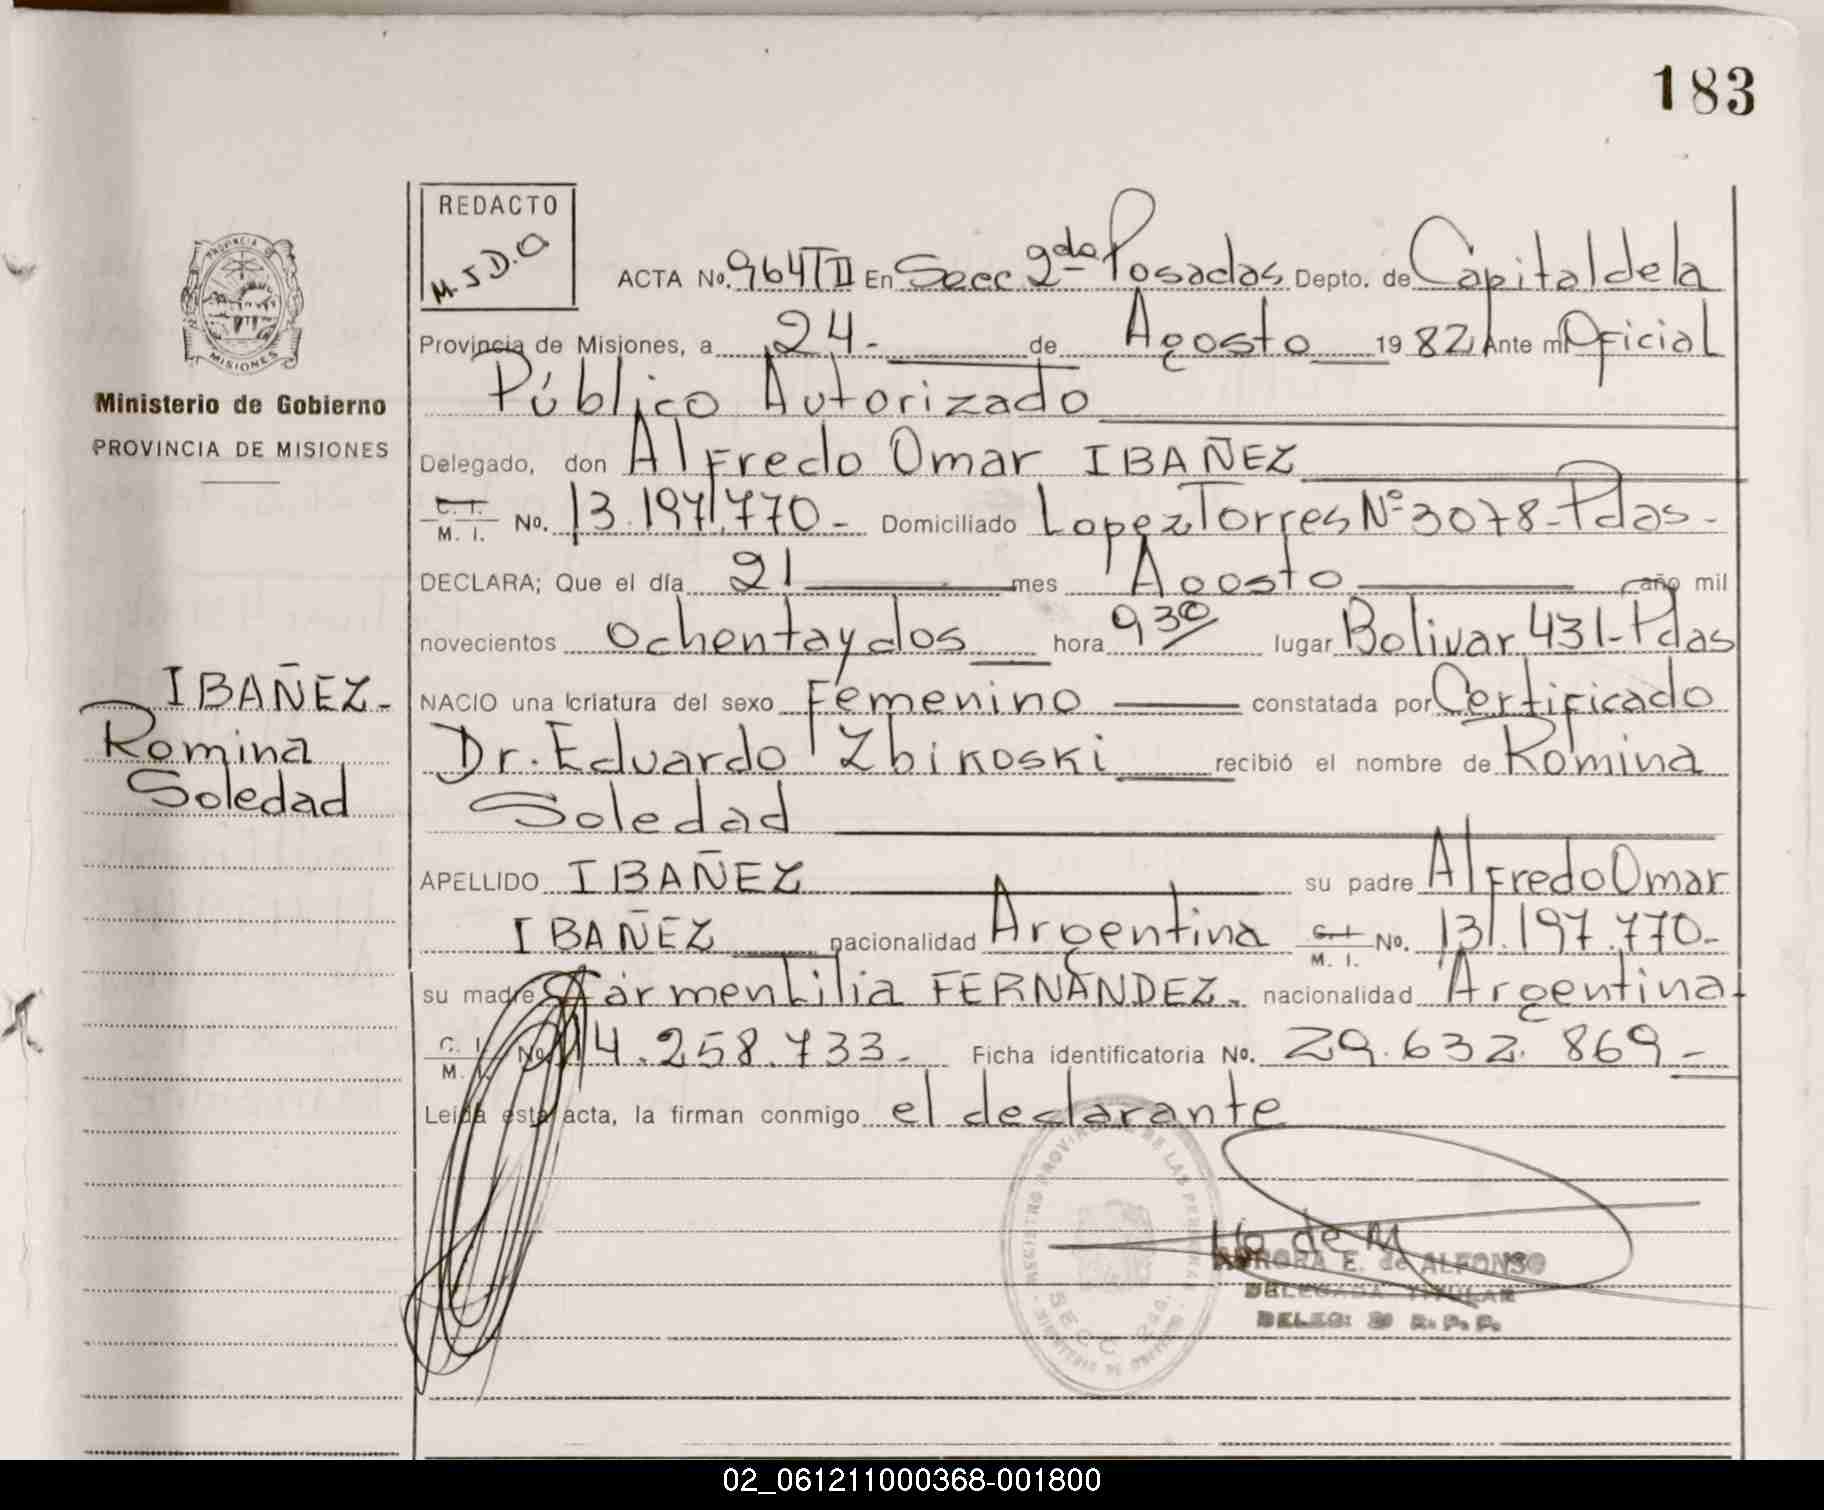 183
REDACTO
M.J.D.O
ACTA No. 964TII En Secc 2da Posadas Depto. de Capital de la
Provincia de Misiones, a 24.- de Agosto 1982, Ante mi Oficial
Público Autorizado
Delegado, don Alfredo Omar IBAÑEZ
C. I. M. I. No. 13.197.770- Domiciliado Lopez Torres Nº 3078-Pdas-
DECLARA; Que el día 21 mes Agosto año mil
novecientos ochenta y dos hora 930 lugar Bolivar 431-Pdas
NACIO una criatura del sexo Femenino constatada por Certificado
Dr. Eduardo Zbikoski recibió el nombre de Romina
Soledad
APELLIDO IBAÑEZ su padre Alfredo Omar
IBAÑEZ nacionalidad Argentina C. I. M. I. No. 13.197.770-
su madre Carmen Lilia FERNÁNDEZ- nacionalidad Argentina-
C. I. M. I. No. 14.258.733- Ficha identificatoria No. 29.632.869-
Leída esta acta, la firman conmigo el declarante
PROVINCIA DE
MISIONES
Ministerio de Gobierno
PROVINCIA DE MISIONES
IBAÑEZ-
Romina
Soledad
REGISTRO PROVINCIAL DE LAS PERSONAS
SECC. 2da.
MINISTERIO DE GOBIERNO
AURORA E. de ALFONSO
DELEGADA TITULAR
DELEG: 2a R. P. P.
02_061211000368-001800